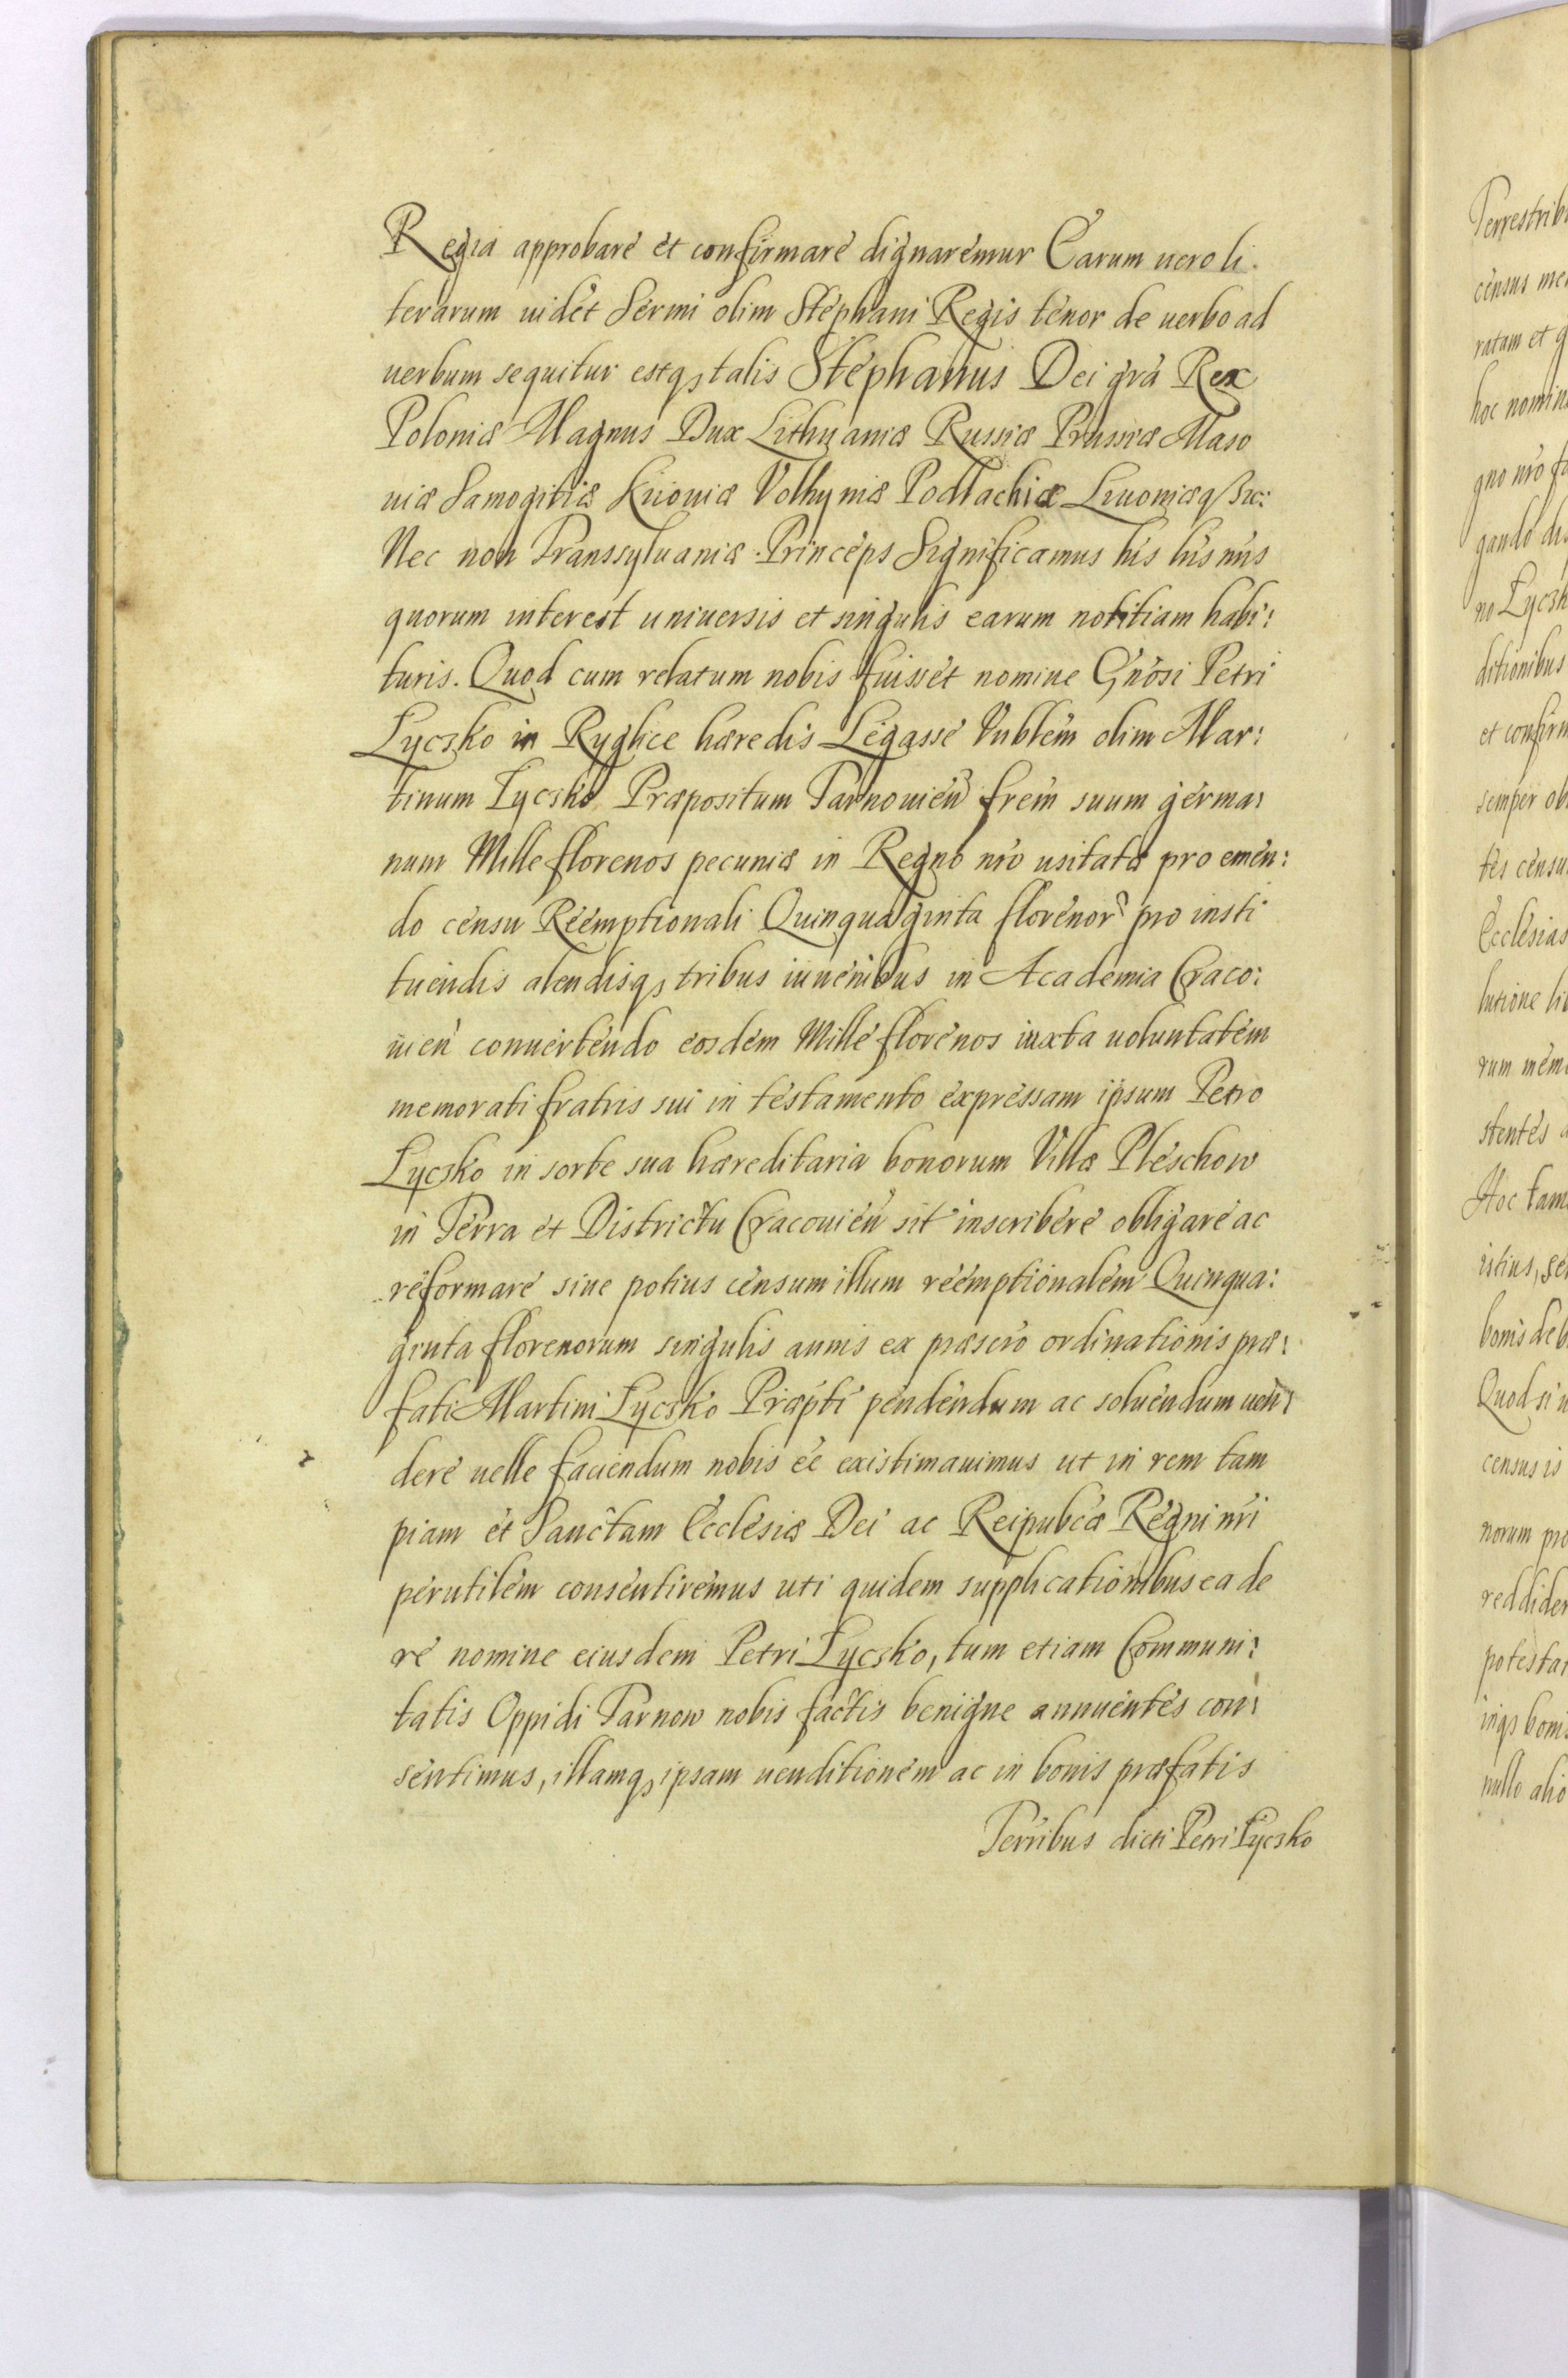 Regia approbare et confirmare dignaremur Earum uero li.
terarum uidet Sermi olim Stephani Regis tenor de uerbo ad
uerbum sequitur estqꝫ talis Stephanus Dei grã Rex
Poloniæ Magnus Dux Lithuaniæ Russiæ Prussiæ Maso
uiæ Samogitiæ Kiiouiæ Volhyniæ Podlachiæ Liuoniæqꝫ
Nec non Transsyluaniæ Princeps Significamus his lris nris
quorum interest uniuersis et singulis earum notitiam habi:
turis. Quod cum relatum nobis fuisset nomine Gnosi Petri
Lycsko in Ryglice hæredis Legasse Vnblem olim Mar:
tinum Lycsko Præpositum Tarnouien frem suum germa:
num Mille florenos pecuniæ in Regno nro usitatæ pro emen:
do censu Reemptionali Quinquaginta florenor pro insti
tuendis alendisqꝫ tribus iuuenibus in Academia Craco:
uien conuertendo eosdem Mille florenos iuxta uoluntatem
memorati fratris sui in testamento expressam ipsum Petro
Lycsko in sorte sua hæreditaria bonorum Villæ Pleschow
in Terra et Districtu Cracouien sit inscribere obligare ac
reformare siue potius censum illum reemptionalem Quinqua:
ginta florenorum singulis annis ex præscro ordinationis præ:
fati Martini Lycsko Præpti pendendum ac soluendum uen:
dere uelle faciendum nobis ee existimauimus ut in rem tam
piam et Sanctam Ecclesiæ Dei ac Reipubcæ Regni nri
perutilem consentiremus uti quidem supplicationibus ea de
re nomine eiusdem Petri Lycsko, tum etiam Communi:
tatis Oppidi Tarnow nobis factis benigne annuentes con:
sentimus, illamqꝫ ipsam uenditionem ac in bonis præfatis
Terribus dicti Petri Lycsko